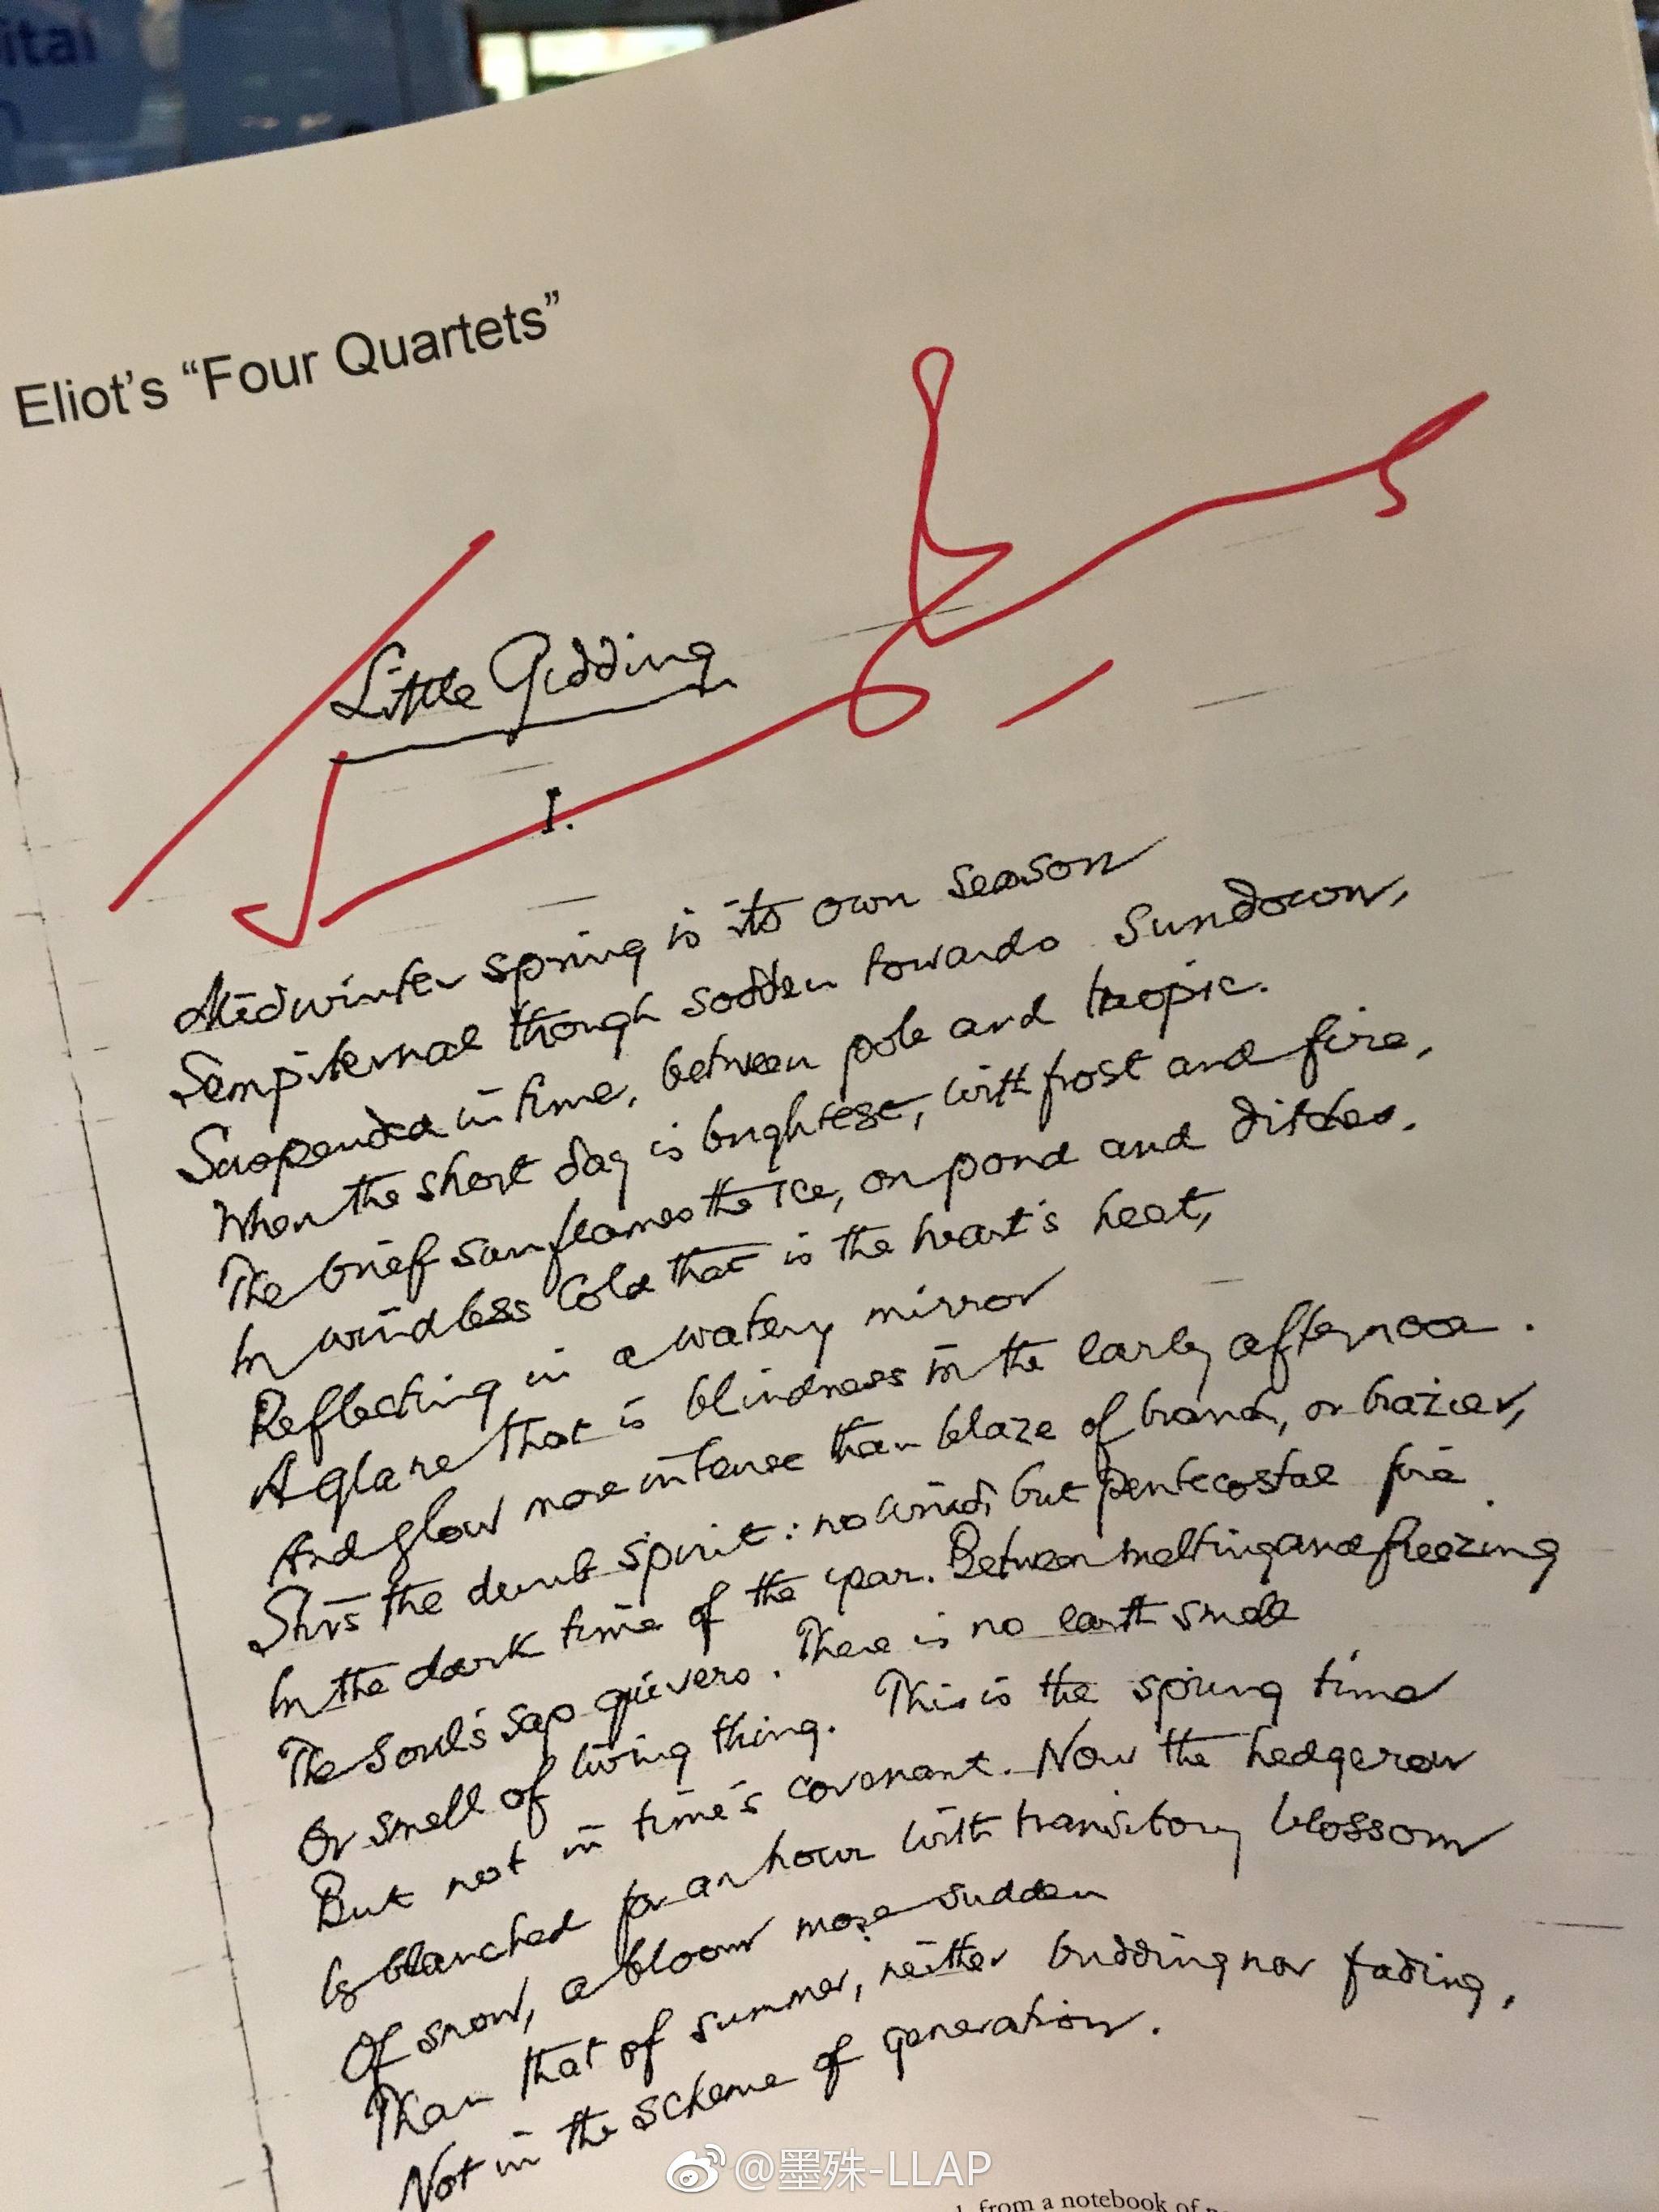 ital
Eliot's “Four Quartets”
Little Gidding
I.
Midwinter spring is its own season
Sempiternal though sodden towards Sundown,
Suspended in time, between pole and tropic.
When the short day is brightest, with frost and fire,
The brief sun flames the ice, on pond and ditches.
In windless cold that is the heart's heat,
Reflecting in a watery mirror
A glare that is blindness in the early afternoon.
And glow more intense than blaze of branch, or brazier,
Stirs the dumb spirit: no wind, but pentecostal fire
In the dark time of the year. Between melting and freezing
The soul's sap quivers. There is no earth smell
Or smell of living thing. This is the spring time
But not in time's covenant. Now the hedgerow
Is blanched for an hour with transitory blossom
Of snow, a bloom more sudden
Than that of summer, neither budding nor fading,
Not in the scheme of generation.
@墨殊-LLAP
from a notebook of